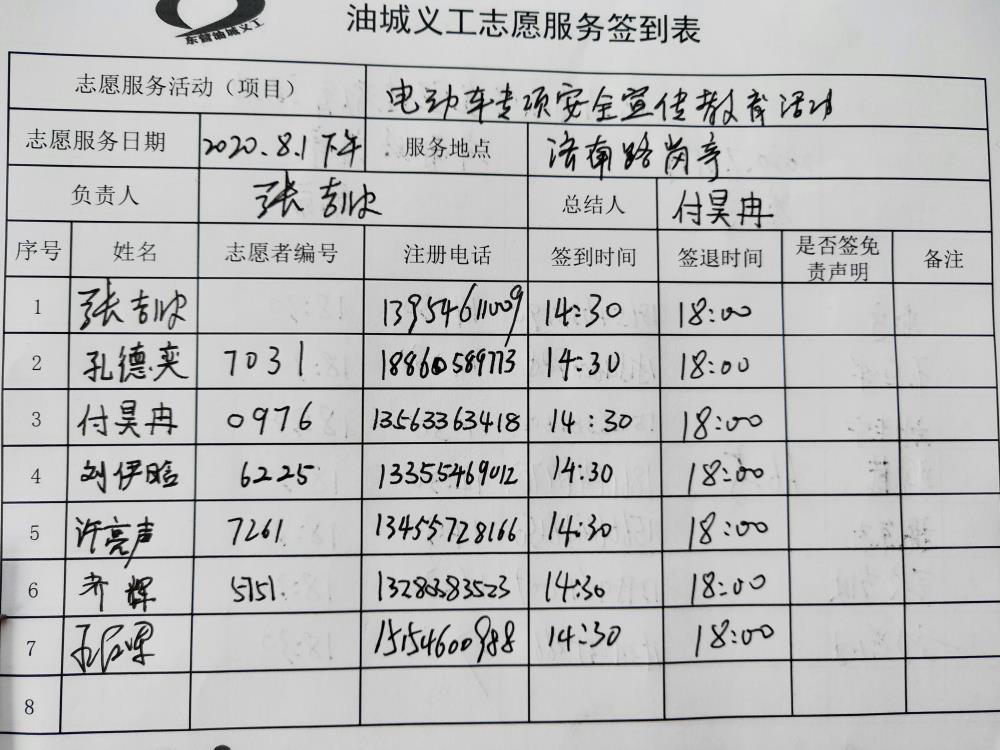 东营油城义工
油城义工志愿服务签到表
志愿服务活动（项目） 电动车专项安全宣传教育活动
志愿服务日期 2020.8.1下午 服务地点 济南路岗亭
负责人 张吉欣 总结人 付昊冉
序号 姓名 志愿者编号 注册电话 签到时间 签退时间 是否签免责声明 备注
1 张吉欣 13954611009 14:30 18:00
2 孔德奕 7031 18860589773 14:30 18:00
3 付昊冉 0976 13563363418 14:30 18:00
4 刘伊晗 6225 13355469012 14:30 18:00
5 许亮声 7261 13455728166 14:30 18:00
6 齐辉 5151. 13280383523 14:30 18:00
7 15154600988 14:30 18:00
8